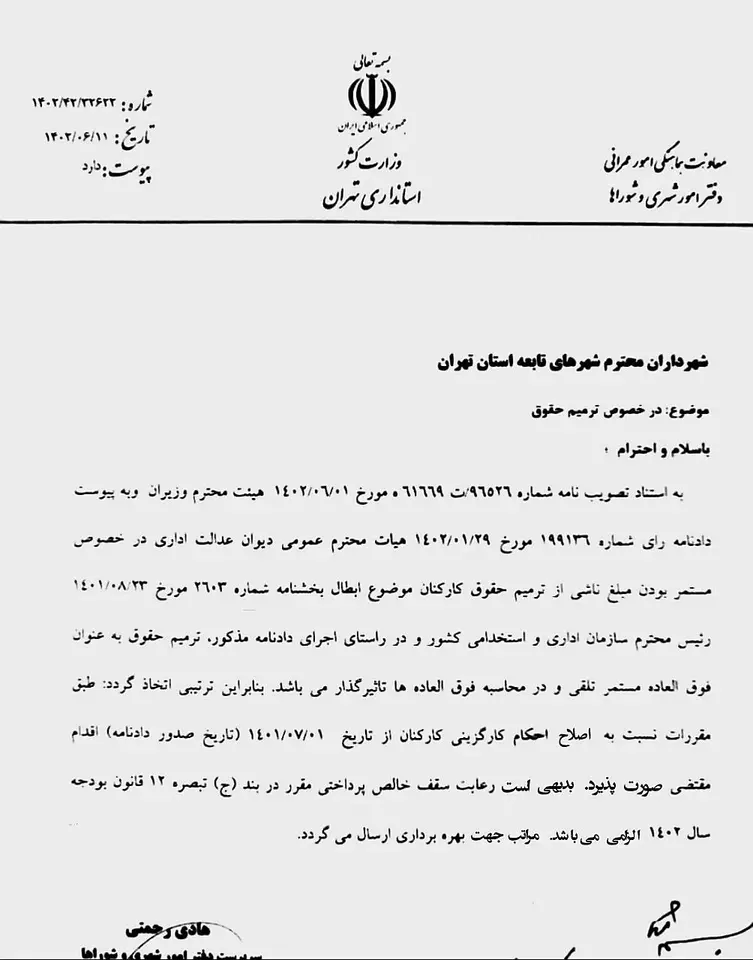 بسمه تعالی
جمهوری اسلامی ایران
وزارت کشور
استانداری تهران
معاونت هماهنگی امور عمرانی
دفتر امور شهری و شوراها
شماره: ۱۴۰۲/۴۲/۳۲۶۲۲
تاریخ: ۱۴۰۲/۰۶/۱۱
پیوست: دارد
شهرداران محترم شهرهای تابعه استان تهران
موضوع: در خصوص ترمیم حقوق
باسلام و احترام ؛
به استناد تصویب نامه شماره ۹۶۵۲۶/ت ۶۱۶۶۹ ه مورخ ۱۴۰۲/۰۶/۰۱ هیئت محترم وزیران وبه پیوست
دادنامه رای شماره ۱۹۹۱۳۶ مورخ ۱۴۰۲/۰۱/۲۹ هیات محترم عمومی دیوان عدالت اداری در خصوص
مستمر بودن مبلغ ناشی از ترمیم حقوق کارکنان موضوع ابطال بخشنامه شماره ۲۶۰۳ مورخ ۱۴۰۱/۰۸/۲۳
رئیس محترم سازمان اداری و استخدامی کشور و در راستای اجرای دادنامه مذکور، ترمیم حقوق به عنوان
فوق العاده مستمر تلقی و در محاسبه فوق العاده ها تاثیرگذار می باشد. بنابراین ترتیبی اتخاذ گردد: طبق
مقررات نسبت به اصلاح احکام کارگزینی کارکنان از تاریخ ۱۴۰۱/۰۷/۰۱ (تاریخ صدور دادنامه) اقدام
مقتضی صورت پذیرد. بدیهی است رعابت سقف خالص پرداختی مقرر در بند (ج) تبصره ۱۲ قانون بودجه
سال ۱۴۰۲ الزامی می باشد. مراتب جهت بهره برداری ارسال می گردد.
هادی رحمتی
سرپرست دفتر امور شهری و شوراها